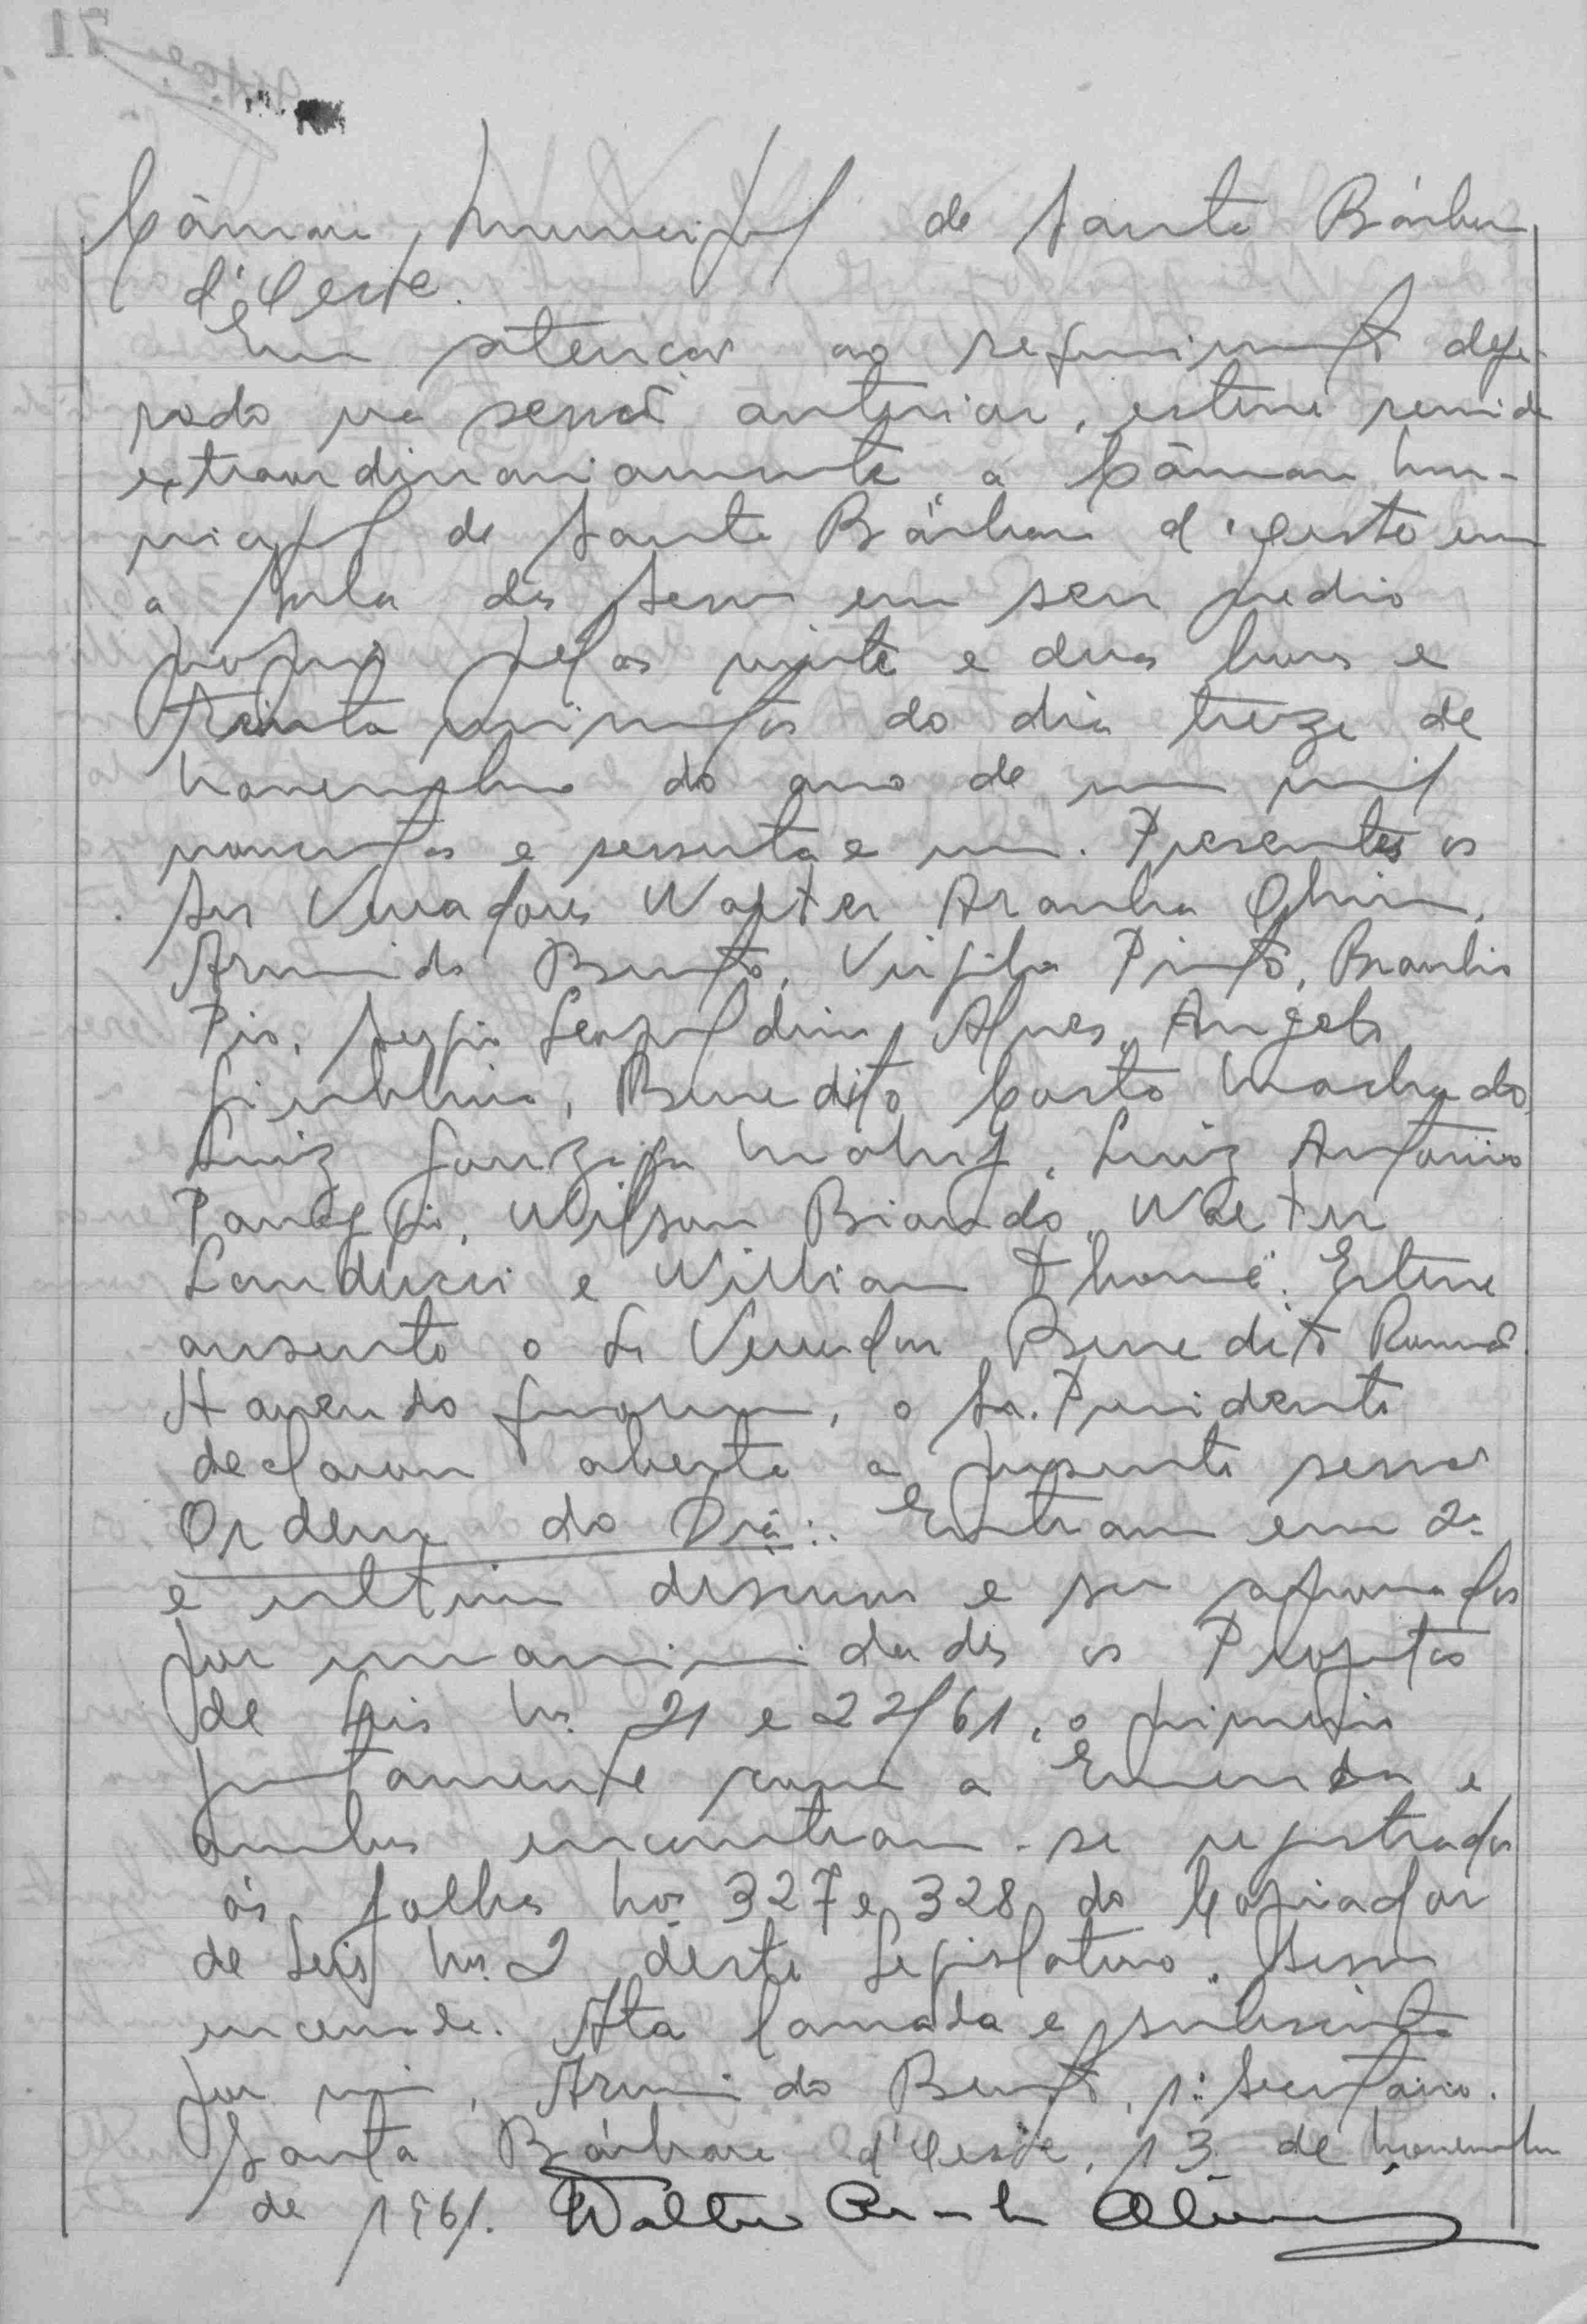 Câmara Municipal de Santa Bárbara
d'Oeste.
Em atenção ao requerimento defe-
rado na sessão anterior, esteve reunida
extraordinariamente a Câmara Mu-
nicipal de Santa Bárbara d'Oeste em
a Sala das Sessões em seu predio
proprio pelas vinte e duas horas e
trinta minutos do dia treze de
Novembro do ano de um mil
novecentos e sessenta e um. Presentes os
Srs Vereadores Walter Aranha Oliveira,
Armindo Bento, Virgilio Pinto, Braulio
Pio, Sergio Leopoldino Alves, Angelo
Giubbina, Benedito Costa Machado,
Luiz Gonzaga Mahuf, Luiz Antonio
Panaggio, Wilson Biando, Walter
Landucci e Willian Thomé. Esteve
ausente o Sr Vereador Benedito Romão.
Havendo quorum, o Sr. Presidente
declarou aberta a presente sessão
Ordem do Dia:. Entram em 2ª
e ultima discussão e são aprovados
por unanimidades os Projetos
de Leis Ns. 21 e 22/61, o primeiro
juntamente com a Emenda e
ambos encontram-se registrados
ás folhas Nos 327 e 328 do Copiador
de Leis Nº. 2 deste Legislativo. Sessão
encerrada. Ata lavrada e subscrita
por mim, Armindo Bento, 1º Secretario.
Santa Bárbara d'Oeste, 13 de Novembro
de 1961. Walter Aranha Oliveira